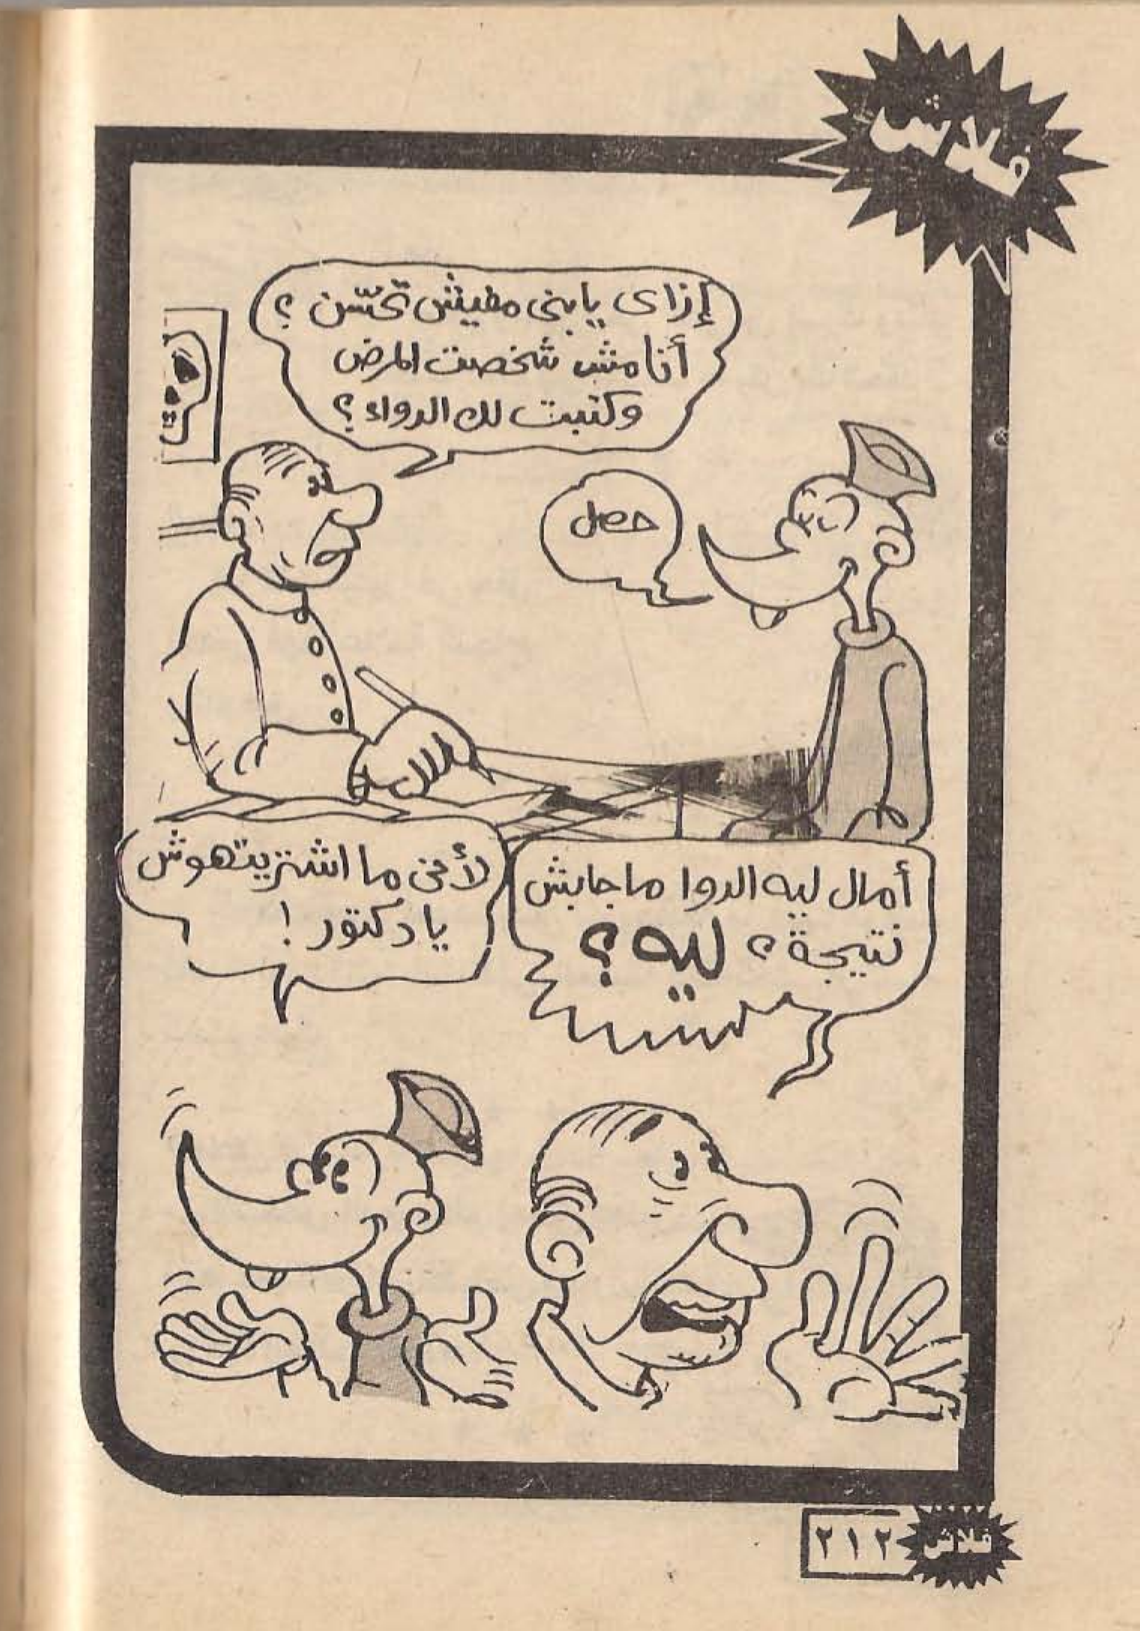 فلاش
إزاى يا بنى مفيش تحسّن ؟
أنا مش شخصت المرض
وكتبت لك الدواء ؟
حصل
أمال ليه الدوا ما جابش
نتيجة ؟ ليه ؟
لأنى ما اشتريتهوش
يا دكتور !
٢١٢
فلاش